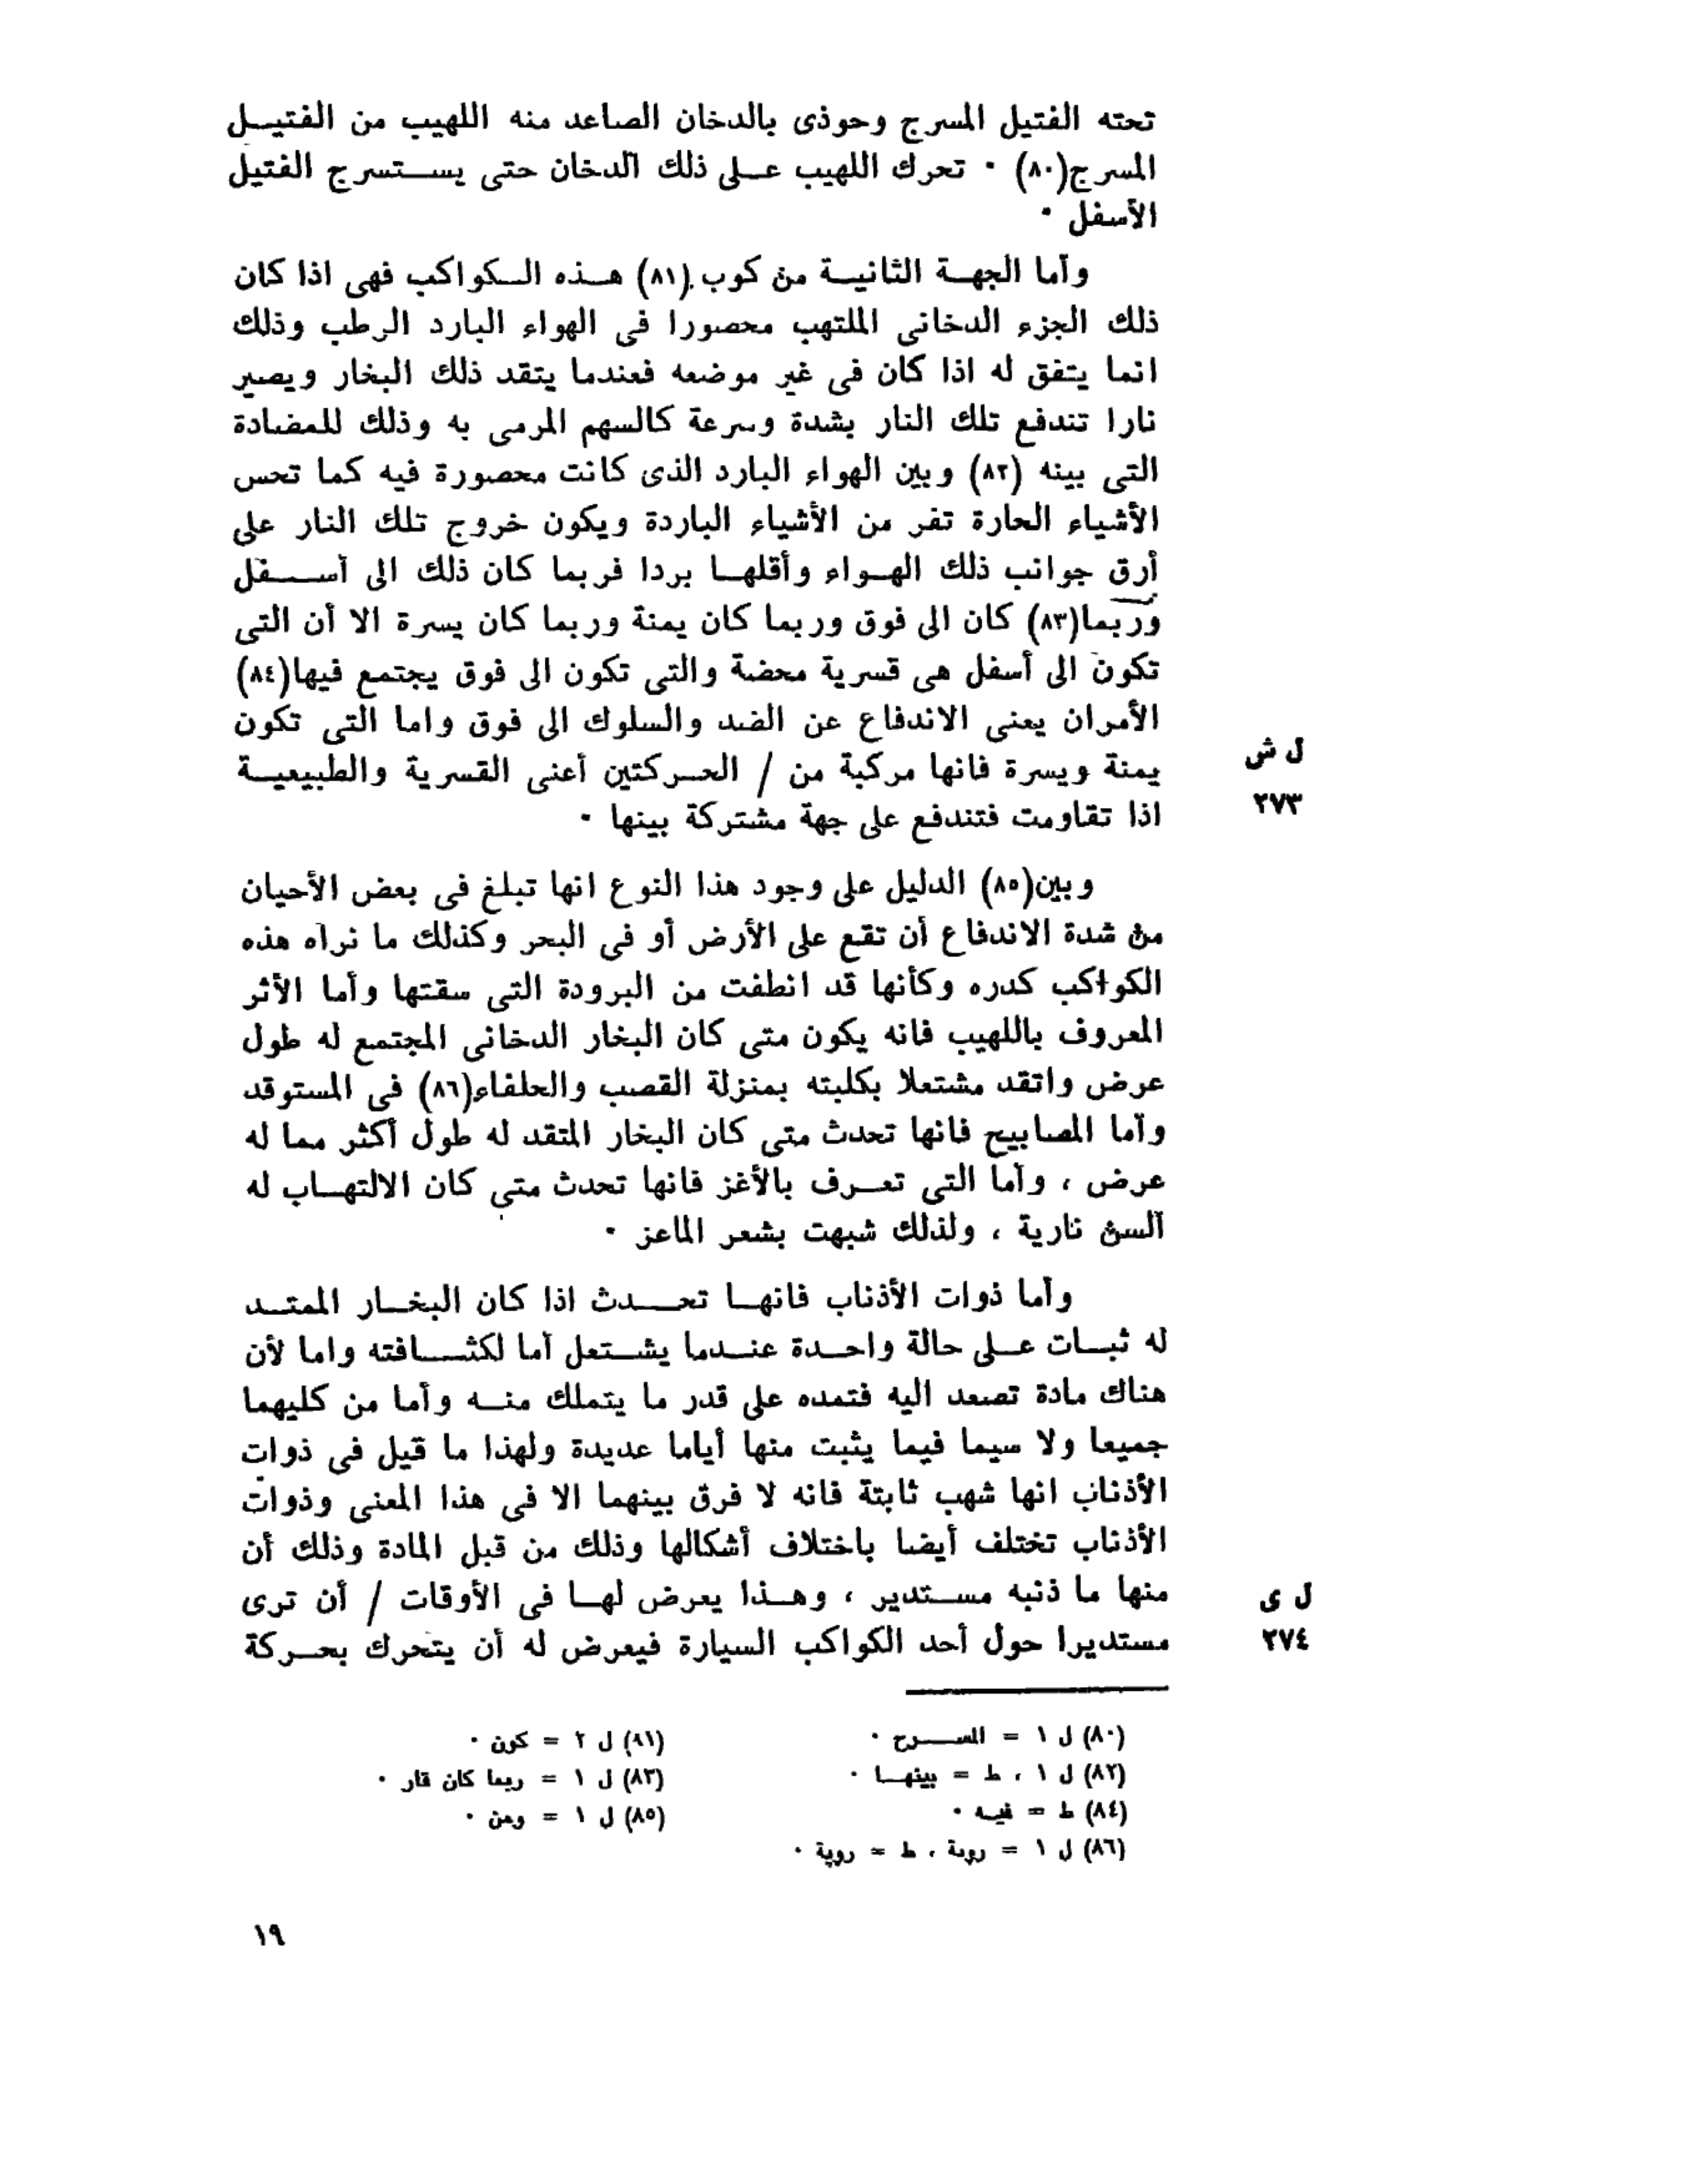 تحته الفتيل المسرج وحوذى بالدخان الصاعد منه اللهيب من الفتيل
المسرج(٨٠) ٠ تحرك اللهيب على ذلك الدخان حتى يستسرج الفتيل
الأسفل ٠
وأما الجهة الثانية من كوب (٨١) هذه الكواكب فهى اذا كان
ذلك الجزء الدخانى الملتهب محصورا فى الهواء البارد الرطب وذلك
انما يتفق له اذا كان فى غير موضعه فعندما يتقد ذلك البخار ويصير
نارا تندفع تلك النار بشدة وسرعة كالسهم المرمى به وذلك للمضادة
التى بينه (٨٢) وبين الهواء البارد الذى كانت محصورة فيه كما تحس
الأشياء الحارة تفر من الأشياء الباردة ويكون خروج تلك النار على
أرق جوانب ذلك الهواء وأقلها بردا فربما كان ذلك الى أسفل
وربما(٨٣) كان الى فوق وربما كان يمنة وربما كان يسرة الا أن التى
تكون الى أسفل هى قسرية محضة والتى تكون الى فوق يجتمع فيها(٨٤)
الأمران يعنى الاندفاع عن الضد والسلوك الى فوق واما التى تكون
يمنة ويسرة فانها مركبة من / الحركتين أعنى القسرية والطبيعية
ل ش
٢٧٣
اذا تقاومت فتندفع على جهة مشتركة بينها ٠
وبين(٨٥) الدليل على وجود هذا النوع انها تبلغ فى بعض الأحيان
من شدة الاندفاع أن تقع على الأرض أو فى البحر وكذلك ما نراه هذه
الكواكب كدره وكأنها قد انطفت من البرودة التى سقتها وأما الأثر
المعروف باللهيب فانه يكون متى كان البخار الدخانى المجتمع له طول
عرض واتقد مشتعلا بكليته بمنزلة القصب والحلفاء(٨٦) فى المستوقد
وأما المصابيح فانها تحدث متى كان البخار المتقد له طول أكثر مما له
عرض ، وأما التى تعرف بالأغز فانها تحدث متى كان الالتهاب له
ألسن نارية ، ولذلك شبهت بشعر الماعز ٠
وأما ذوات الأذناب فانها تحدث اذا كان البخار الممتد
له ثبات على حالة واحدة عندما يشتعل أما لكثافته واما لأن
هناك مادة تصعد اليه فتمده على قدر ما يتملك منه وأما من كليهما
جميعا ولا سيما فيما يثبت منها أياما عديدة ولهذا ما قيل فى ذوات
الأذناب انها شهب ثابتة فانه لا فرق بينهما الا فى هذا المعنى وذوات
الأذناب تختلف أيضا باختلاف أشكالها وذلك من قبل المادة وذلك أن
منها ما ذنبه مستدير ، وهذا يعرض لها فى الأوقات / أن ترى
ل ى
٢٧٤
مستديرا حول أحد الكواكب السيارة فيعرض له أن يتحرك بحركة
(٨٠) ل ١ = المسرح ٠
(٨١) ل ٢ = كون ٠
(٨٢) ل ١ ، ط = بينها ٠
(٨٣) ل ١ = ربما كان قار ٠
(٨٤) ط = فيه ٠
(٨٥) ل ١ = ومن ٠
(٨٦) ل ١ = روبة ، ط = روية ٠
١٩